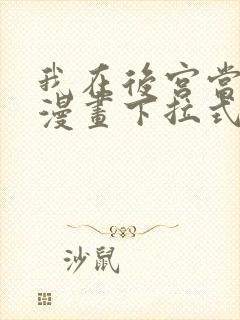 我在後宮當
漫畫下拉式
沙鼠